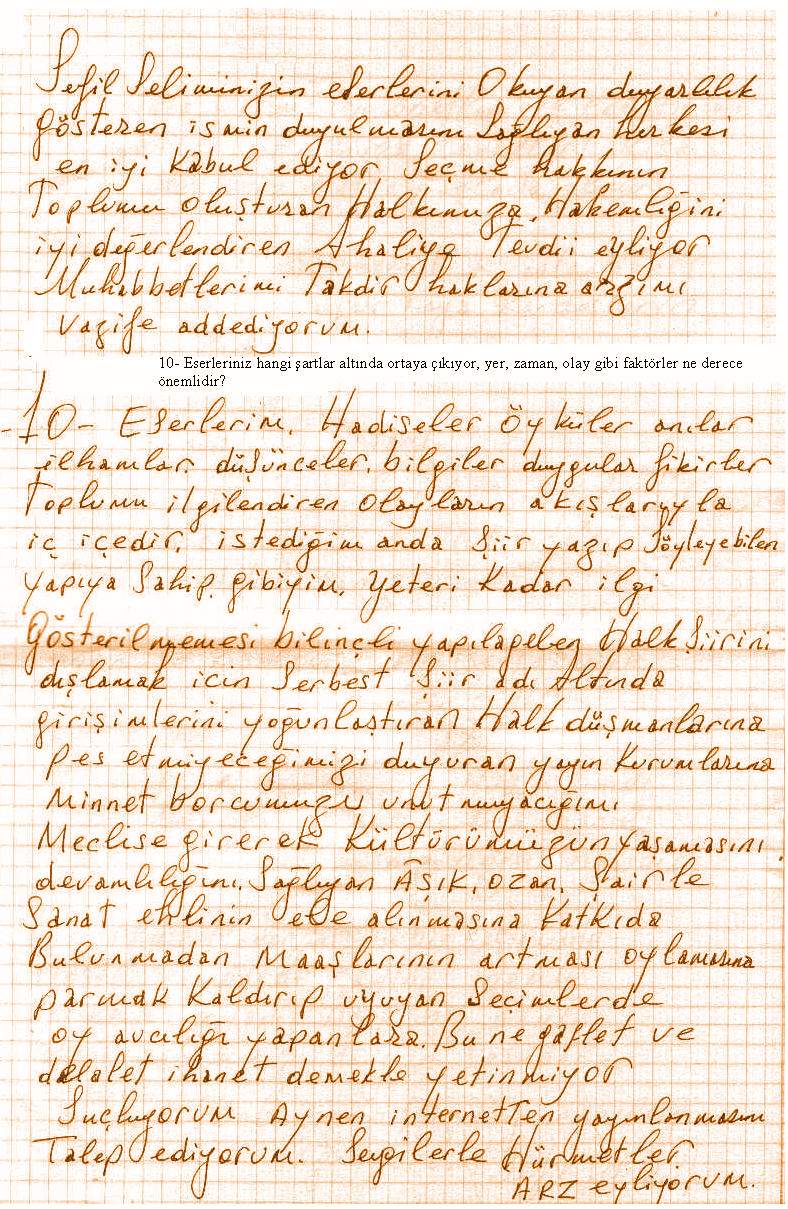 Sefil Seliminizin eserlerini Okuyan duyarlılık
gösteren ismin duyulmasını Sağlıyan herkesi
en iyi Kabul ediyor, Seçme hakkının
Toplumu oluşturan Halkımıza, Hakemliğini
iyi değerlendiren Ahaliye Tevdii eyliyor
Muhabbetlerimi Takdir haklarına arzımı
Vazife addediyorum.
10- Eserleriniz hangi şartlar altında ortaya çıkıyor, yer, zaman, olay gibi faktörler ne derece
önemlidir?
-10- Eserlerim, Hadiseler Öyküler anılar
ilhamlar, düşünceler, bilgiler duygular fikirler
Toplumu ilgilendiren Olayların akışlarıyla
iç içedir, istediğim anda Şiir yazıp Söyleyebilen
yapıya Sahip gibiyim, yeteri Kadar ilgi
Gösterilmemesi bilinçli yapılagelen Halk Şiirini
dışlamak icin Serbest Şiir adı Altında
girişimlerini yoğunlaştıran Halk düşmanlarına
pes etmiyeceğimizi duyuran yayın Kurumlarına
Minnet borcumuzu unutmuyacığımı
Meclise girerek Kültürümüzün yaşamasını
devamlılığını, Sağlıyan ÂŞIK, OZAN, Şairle
Sanat ehlinin ele alınmasına Katkıda
Bulunmadan Maaşlarının artması oylamasına
parmak Kaldırıp uyuyan Seçimlerde
oy avcılığı yapanlara. Bu ne gaflet ve
dalalet ihanet demekle yetinmiyor
Suçluyorum Aynen internetten yayınlanmasını
Talep ediyorum. Sevgilerle Hürmetler
ARZ eyliyorum.